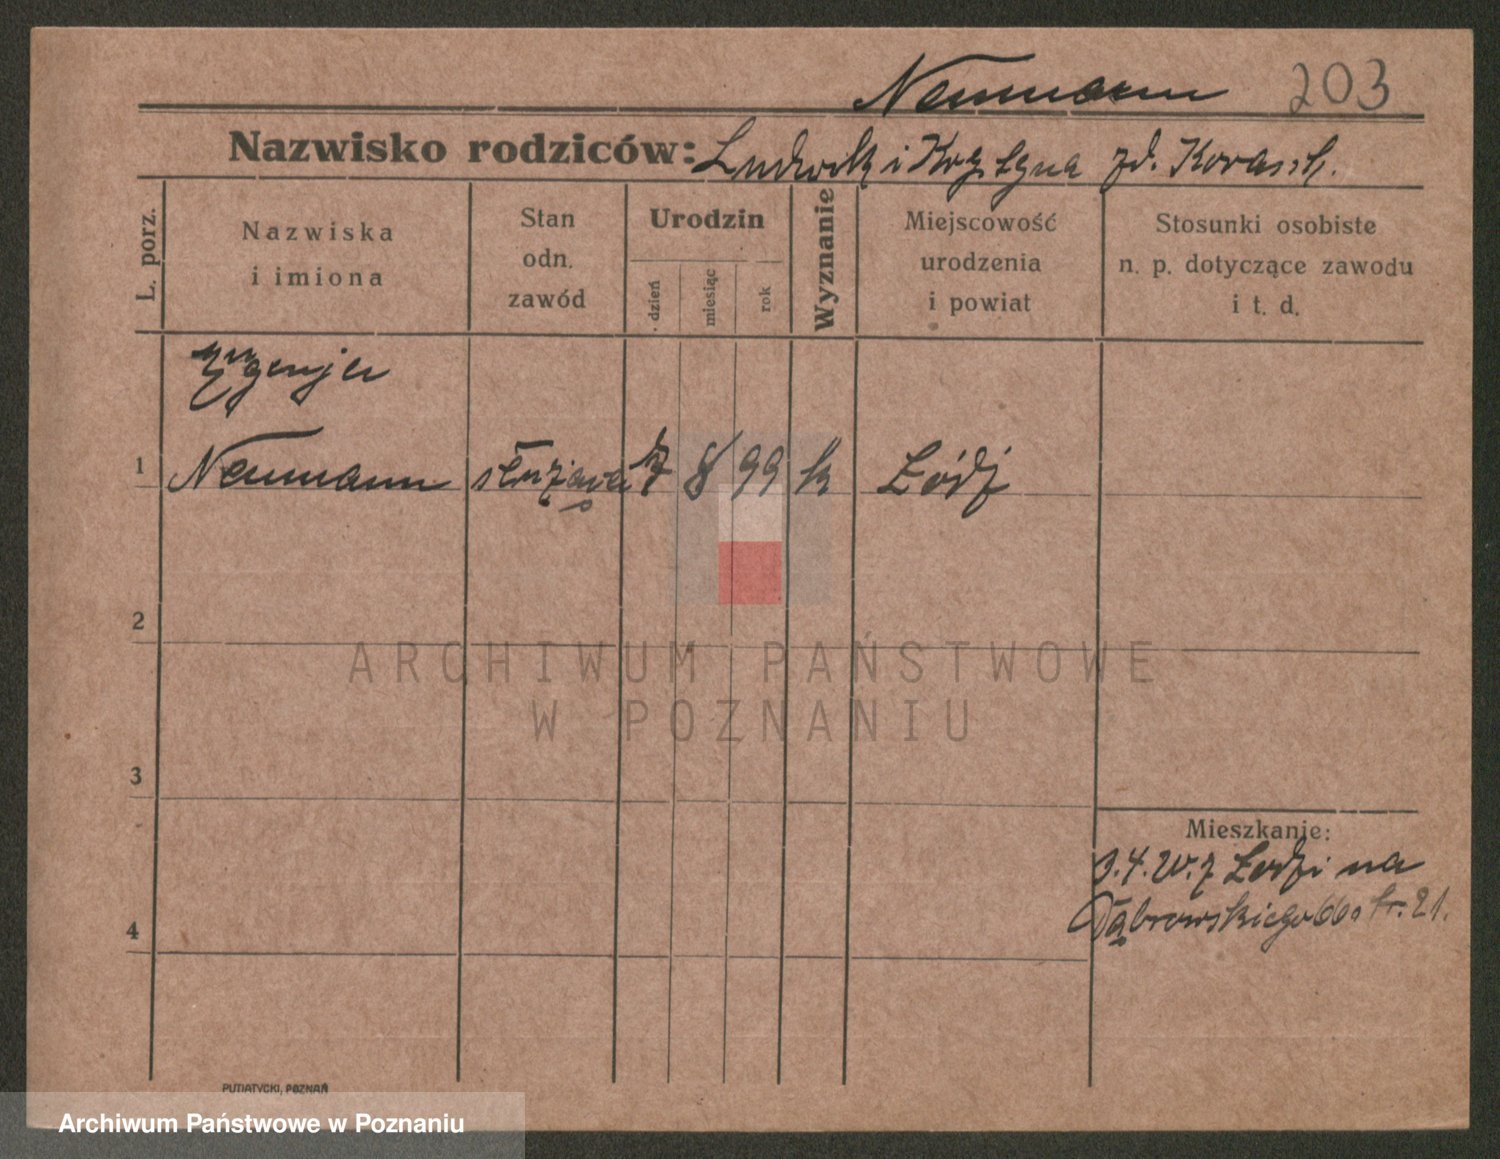 Neumann 203
Nazwisko rodziców: Ludwik i Krystyna zd.
L. porz.
Nazwiska
i imiona
Stan
odn.
zawód
Urodzin
dzień
miesiąc
rok
Wyznanie
Miejscowość
urodzenia
i powiat
Stosunki osobiste
n. p. dotyczące zawodu
i t. d.
Eugenja
1 Neumann służąca 7 8 99 k Łódź
2
ARCHIWUM PAŃSTWOWE
W POZNANIU
3
Mieszkanie:
3.4.20. z Łodzi na
4 Dąbrowskiego 66 tr. 21.
PUTIATYCKI, POZNAŃ
Archiwum Państwowe w Poznaniu